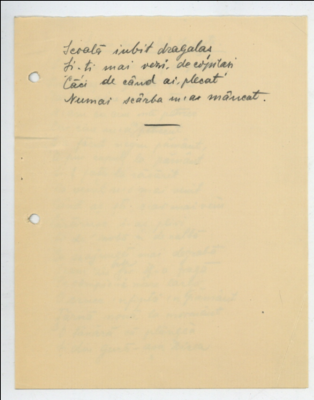 Scoală iubit dragălaș
Și-ți mai vezi de copilași
Căci de când ai plecat
Numai scârba m-as mâncat.